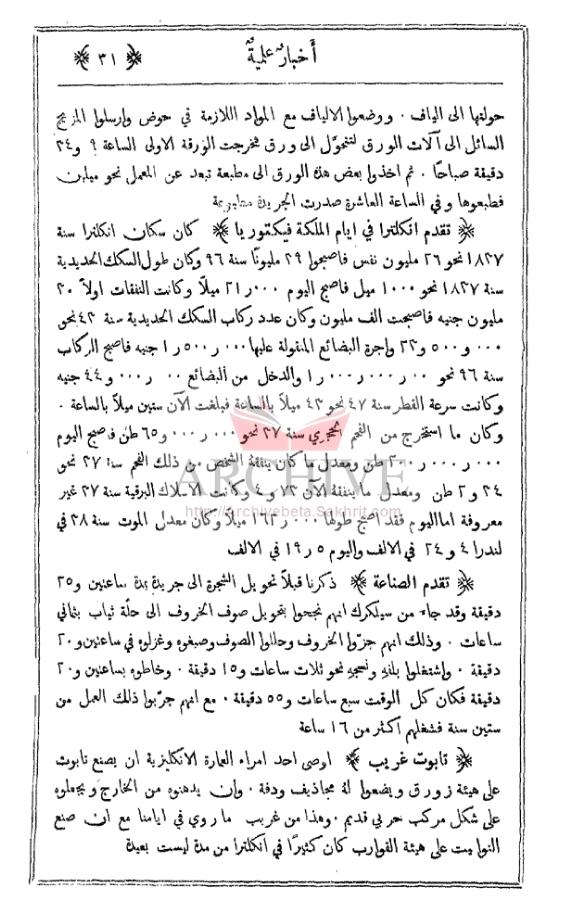 أخبار علمية ﴿٣١﴾
حولتها الى الياف ۰ ووضعوا الالياف مع المواد اللازمة في حوض وارسلوا المزيج
السائل الى آلات الورق لتتحوّل الى ورق فخرجت الورقة الاولى الساعة ٩ و٣٤
دقيقة صباحًا ۰ ثم اخذوا بعض هذه الورق الى مطبعة تبعد عن المعمل نحو ميلين
فطبعوها وفي الساعة العاشرة صدرت الجريدة مطبوعة
﴿ تقدم انكلترا في ايام الملكة فيكتوريا ﴾ كان سكان انكلترا سنة
١٨٣٧ نحو ٢٦ مليون نفس فاصبحوا ٣٩ مليونًا سنة ٩٦ وكان طول السكك الحديدية
سنة ١٨٣٧ نحو ١٠٠٠ ميل فاصبح اليوم ٢١٫٠٠٠ ميلًا وكانت النفقات اولًا ٣٠
مليون جنيه فاصبحت الف مليون وكان عدد ركاب السكك الحديدية سنة ٤٣ نحو
واجرة البضائع المنقولة عليها ١٫٥٠٠٫٠٠٠ جنيه فاصبح الركاب
سنة ٩٦ نحو والدخل من البضائع جنيه
وكانت سرعة القطر سنة ٤٧ نحو ٤٣ ميلًا بالساعة فبلغت الآن ستين ميلًا بالساعة ۰
وكان ما استخرج من الفحم الحجري سنة ٣٧ نحو طن فاصبح اليوم
طن ومعدل ما كان ينفقة الشخص من ذلك الفحم سنة ٣٧ نحو
طن ومعدل ما ينفقة الآن وكانت الاسلاك البرقية سنة ٣٧ غير
معروفة اما اليوم فقد اصبح طولها ميلًا وكان معدل الموت سنة ٣٨ في
لندرا ٤ و ٢٤ في الالف واليوم ٥ ر١٩ في الالف
﴿ تقدم الصناعة ﴾ ذكرنا قبلًا تحويل الشجرة الى جريدة بمدة ساعتين و٢٥
دقيقة وقد جاء من سيلكرك انهم نجحوا بتحويل صوف الخروف الى حلّة ثياب بثماني
ساعات ۰ وذلك انهم جزّوا الخروف وحللوا الصوف وصبغوه وغزلوه في ساعتين و٢٠
دقيقة ۰ واشتغلوا بلفه ونسجه نحو ثلاث ساعات و١٥ دقيقة ۰ وخاطوه بساعتين و٢٠
دقيقة فكان كل الوقت سبع ساعات و٥٥ دقيقة ۰ مع انهم جرّبوا ذلك العمل من
ستين سنة فشغلهم اكثر من ١٦ ساعة
﴿ تابوت غريب ﴾ اوصى احد امراء العمارة الانكليزية ان يصنع تابوت
على هيئة زورق ويضعوا لهُ مجاذيف ودفة ۰ وان يدهنوه من الخارج ويجعلوه
على شكل مركب حربي قديم ۰ وهذا من غريب ما روي في ايامنا مع ان صنع
التوابيت على هيئة القوارب كان كثيرًا في انكلترا من مدة ليست بعيدة
ARCHIVE
http://archivebeta.Sakhrit.com